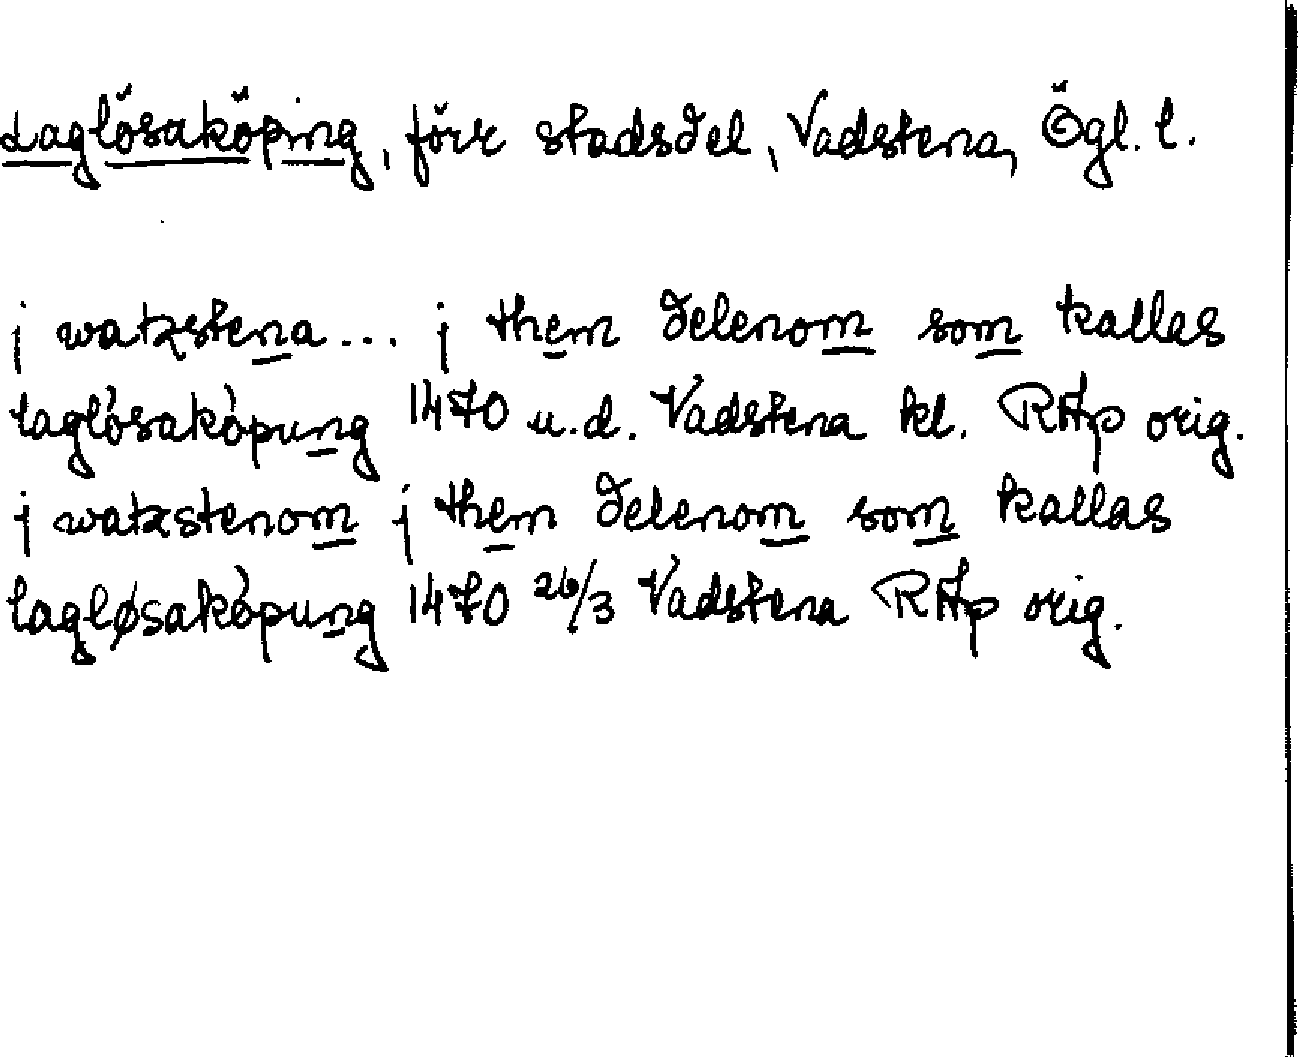 Laglösaköping, förr stadsdel, Vadstena, Ögl. l.
j watzstena... j them delenom som kallas
laglósakópung 1470 u.d. Vadstena kl. RAp orig.
j watzstenom j them delenom som kallas
lagløsakópung 1470 26/3 Vadstena RAp orig.